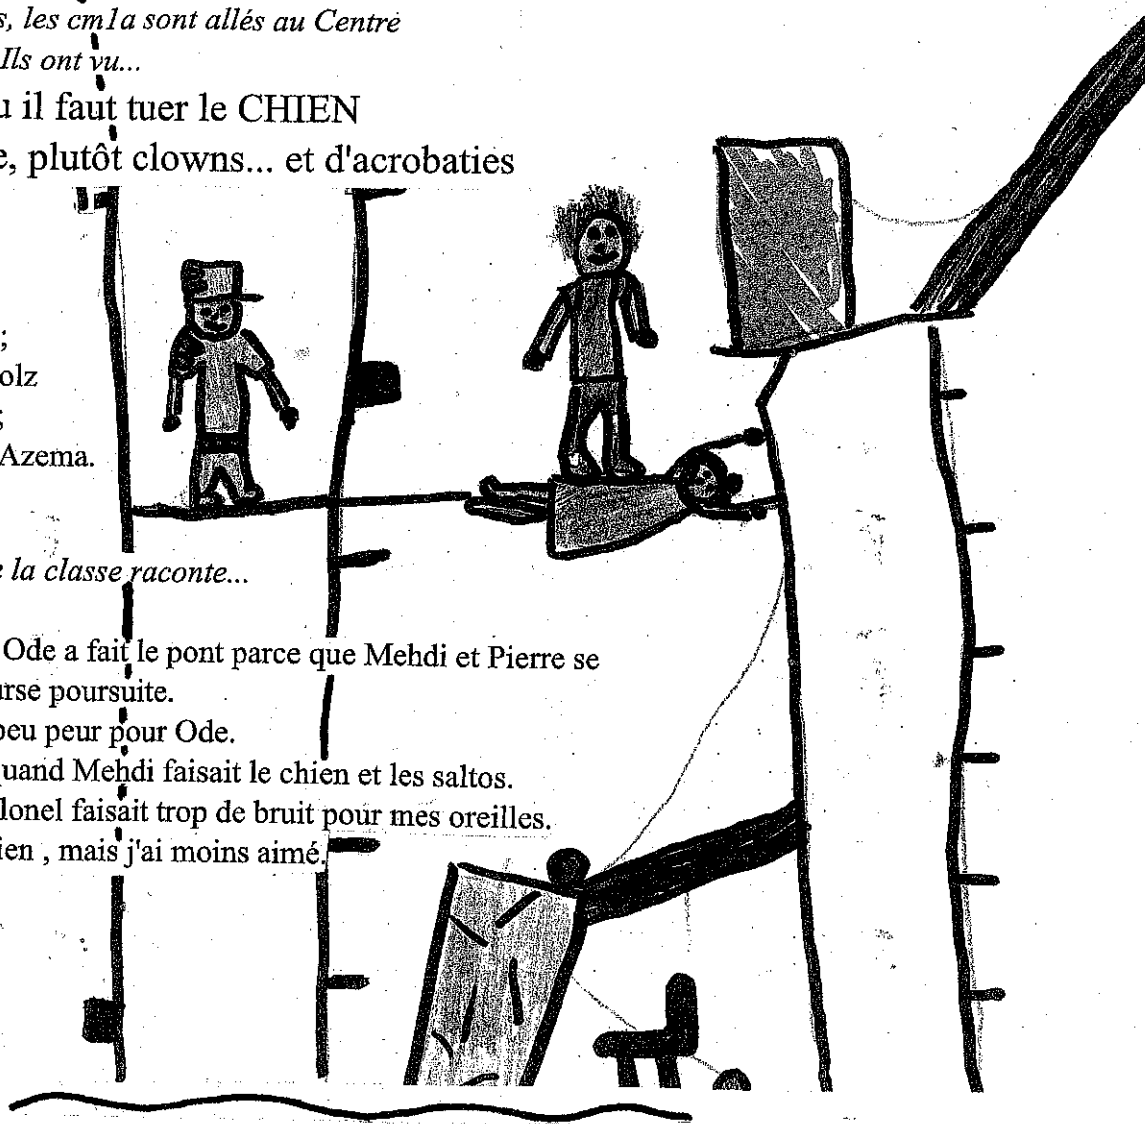 s, les cm1a sont allés au Centre
Ils ont vu...
u il faut tuer le CHIEN
e, plutôt clowns... et d'acrobaties
;
olz
;
Azema.
e la classe raconte...
Ode a fait le pont parce que Mehdi et Pierre se
urse poursuite.
peu peur pour Ode.
uand Mehdi faisait le chien et les saltos.
lonel faisait trop de bruit pour mes oreilles.
ien , mais j'ai moins aimé.